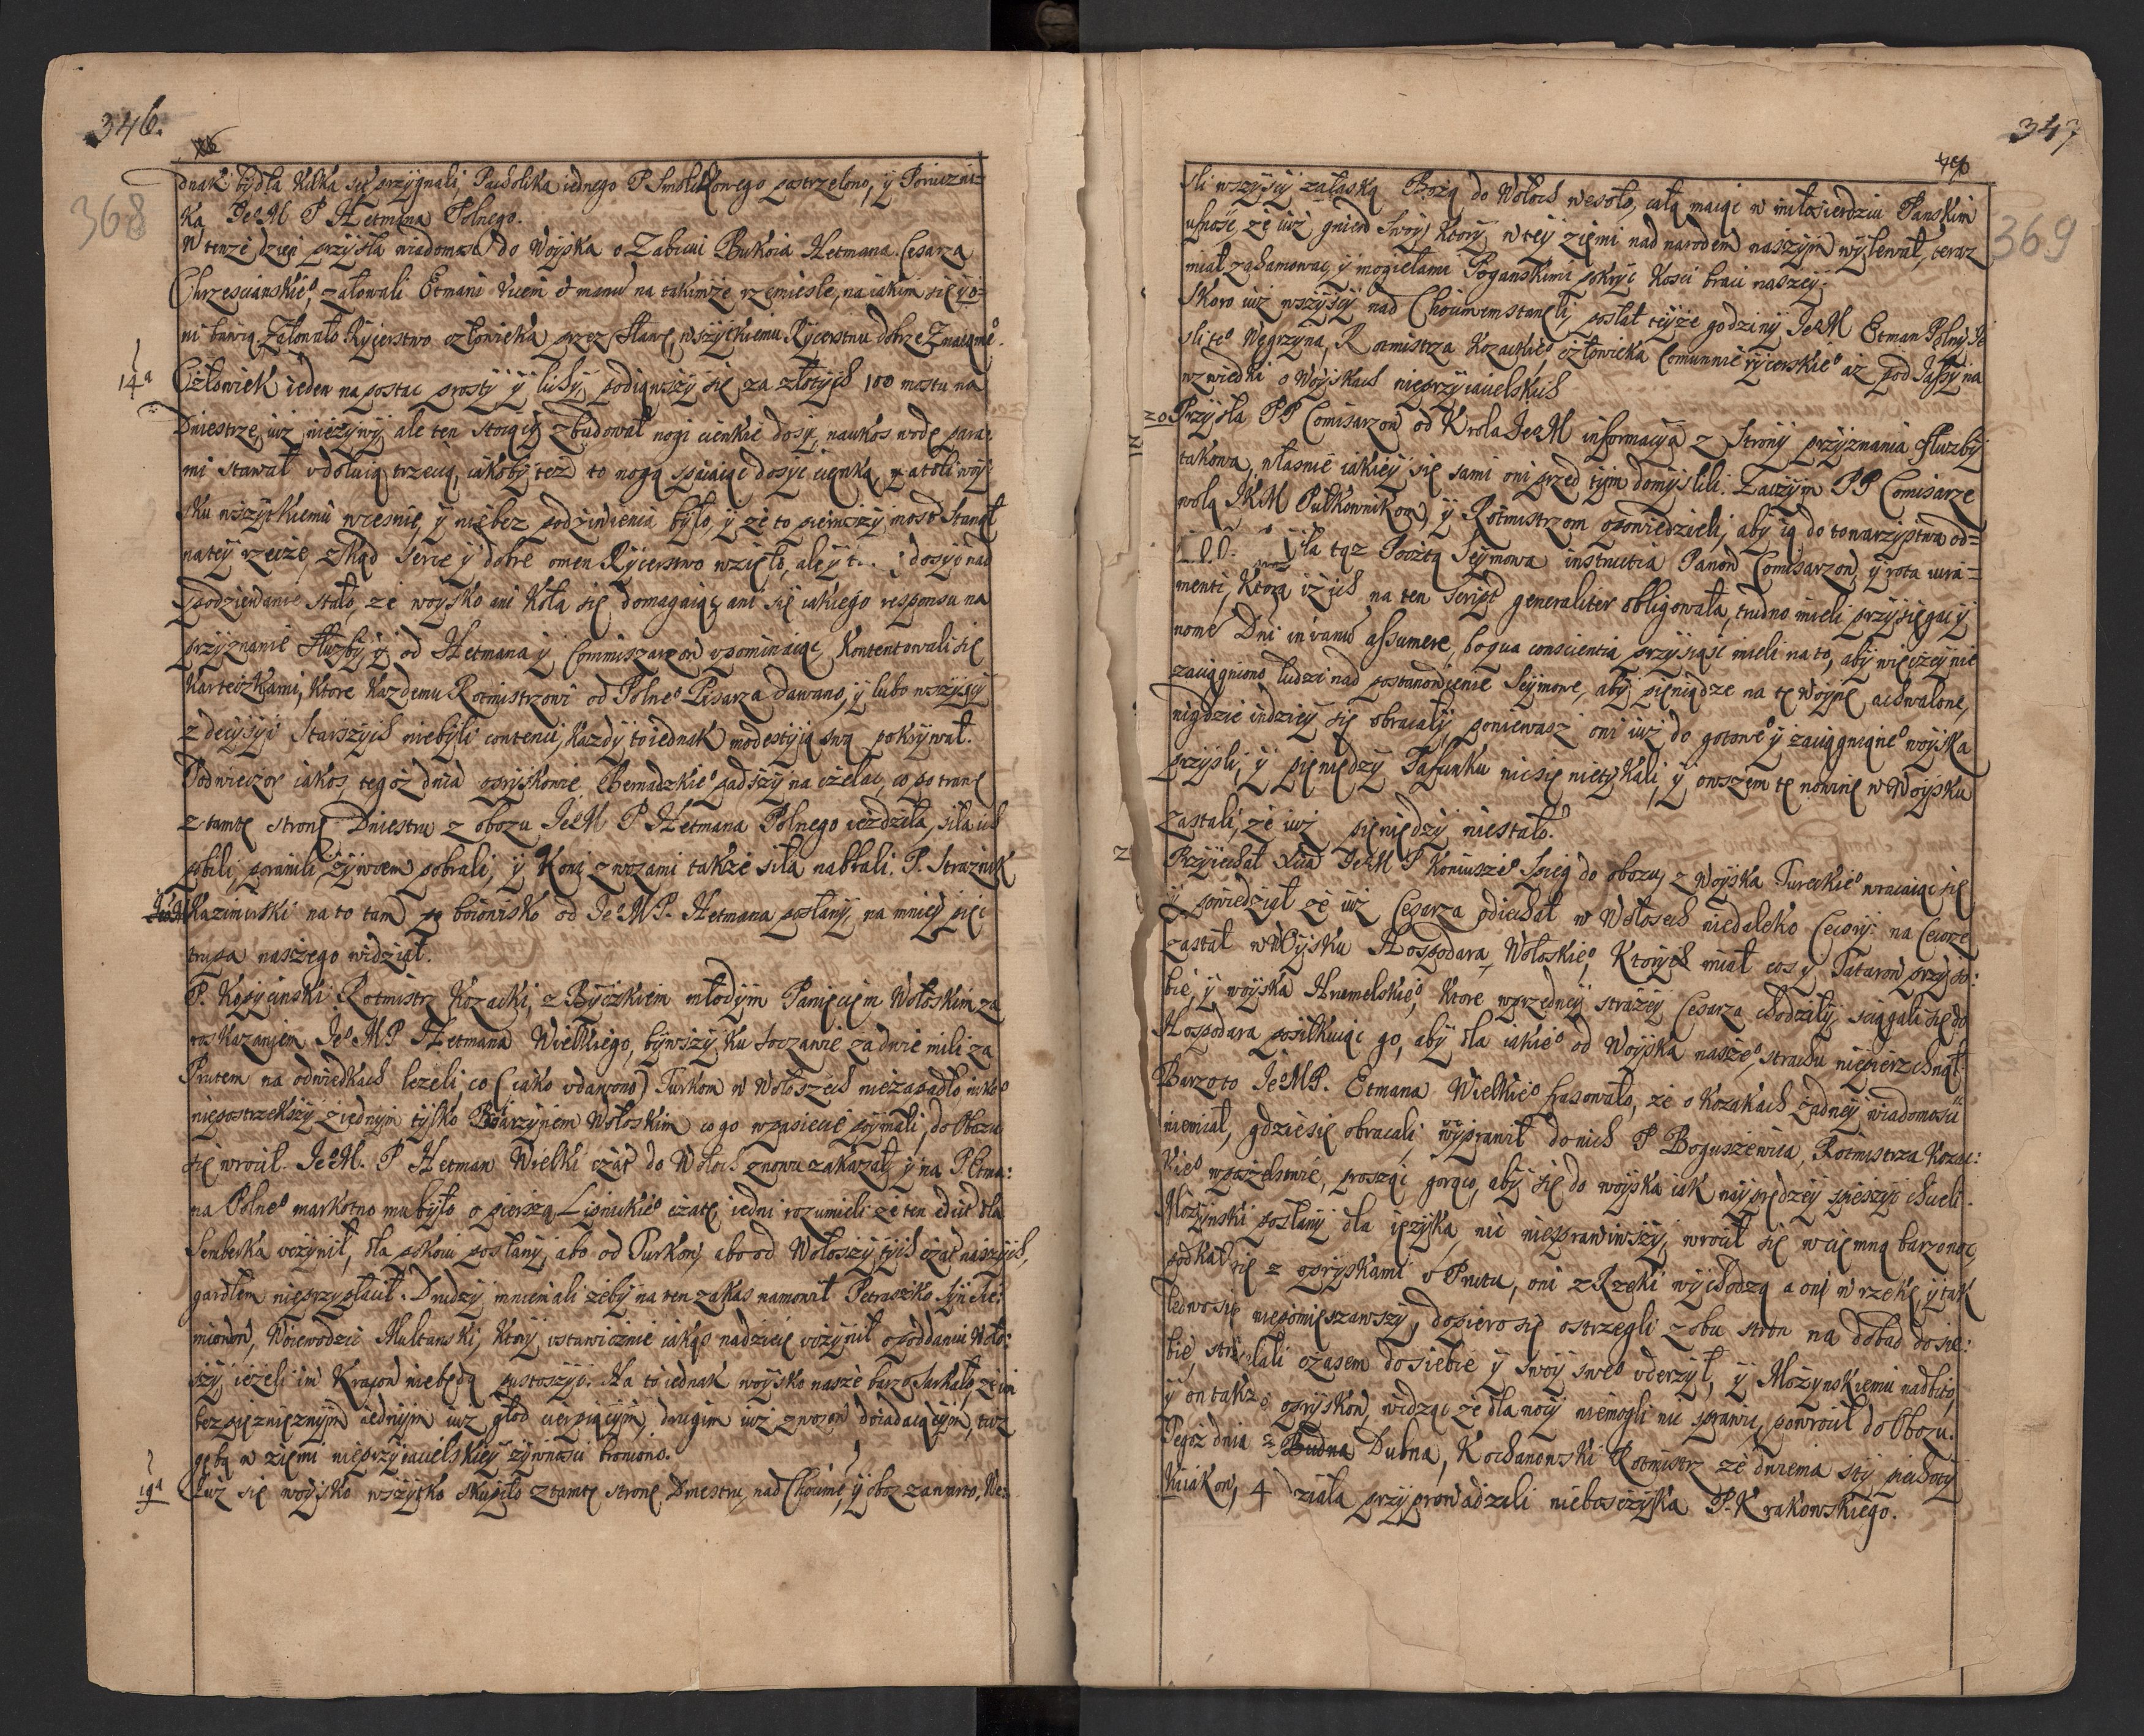 346.
368
dnak bydła kilka set przygnali, Pacholika iednego P. Smolikowego postrzelono, y Poruczni-
ka JeoM P Hetmana Polnego.
W tenże dzień przyszła wiadomość do Woyska o Zabiciu Bukoia Hetmana Cesarza
Chrzescianskieo, załowali Etmani vicem et manu na takimże rzemieśle, na iakim się y o-
ni bawią Załowało Rycerstwo człowieka przez sławę, wszytkiemu Rycerstwu dobrze Znaiomeo.
14a
Człowiek ieden na postac prosty y lichy, podiąwszy się za złotych 100 mostu na
Dniestrze, iuż nieżywy ale ten stoiący zbudował nogi cienkie dosyć, naukos wodę para-
mi stawał trzecią, iakoby też to nogą spaiaiąc dosyc cienką, a toli woy-
sku wszytkiemu wcesnie, y nie bez podziwienia było, y że to pierwszy most stanął
na tey rzecze, zkąd serce y dobre omen Rycerstwo wzięło, ale y t... dosyc nad
spodziewanie stało, że woysko ani koła się domagaiąc, ani się iakiego responsu na
przyznanie służby, y od Hetmana y Commiszarzow vpominaiąc, kontentowali się
karteczkami, ktore każdemu Rotmistrzowi od Polneo Pisarza dawano, y lubo wszyscy
z decysyi starszych niebyli contenci, każdy to iednak modestyią swą pokrywał.
Podwieczor iakos, tegoż dnia opryskowie padszy na czeladź, co po trawę
z tamtę stronę Dniestru z obozu JeoM P Hetmana Polnego iezdziła, siła ich
pobili, poranili, żywcem pobrali, y koni z wozami także siła nabrali. P. Straznik
Kazimirski na to tam po boionisko od JeoMP. Hetmana posłany, na mniey pięć
trupa naszego widział.
P. Kosycinski Rotmistrz Kozacki, z Byczkiem młodym Panięciem Wołoskim za
roskazaniem JeoMP Hetmana Wielkiego, bywszy ku Soczawie za dwie mili za
Prutem na odwiedkach leżeli co (iako vdawano) Turkow w Wołoszech niezapadło nikoo
niepostrzekszy, z iednym tylko Wołoskim co go w pasiecie poymali, do Obozu
się wrocił. JeoM. P Hetman Wielki czat do Wołoch znowu zakazał, y na P. Etma:
na Polneo markotno mu było o pierszą Lipnickieo czatę, iedni rozumieli że ten edict dla
Semberka vczynił, dla pokoiu posłany, abo od Turkow, abo od Wołoszy tych czat naszych,
gardłem nieprzypłacił. Drudzy mniemali żeby na ten zakas namowił Petraszko syn Sie:
mionow, Woiewodzic Multanski, ktory vstawicznie iakąs nadzieię vczynił o poddaniu Woło:
szy, ieżeli im kraiow niebędą pustoszyć. Na to iednak woysko nasze barzo sarkało, że im
bez pieznięznym iednym iuż głod cierpiącym, drugim iuż z wozow doiadaiącym, tuż
gębą w ziemi nieprzyiacielskiey żywnosci broniono.
19a
Już się woysko wszytko skupiło z tamtę stronę Dniestru nad Chocim, y oboz zawarto, We-
347
369
sli wszyscy załaską Bożą do Wołoch wesoło, całą maiąc w miłosierdziu Panskim
ufność, że iuż gniew swoy, ktory w tey ziemi nad narodem naszym wylewał, teraz
miał zahamowac, y mogiełami Poganskimi pokryć kosci braci naszey.
Skoro iuż wszyscy nad Chocimem stanęli, posłał teyże godziny JeoM Etman Polny
Węgrzyna, Rotmistrza Kozackieo, człowieka Comunnie rycerskieo aż pod Jassy na
wzwiedki o woyskach nieprzyiacielskich
20
Przyszła PP Comisarzow od Krola JeoM informacyia z strony przyznania służby
takowa, własnie iakiey się sami oni przed tym domyslili. Zaczym PP Comisarze
wolą JKM Pułkownikom, y Rotmistrzom opowiedzieli, aby ią do towarzystwa od=
Pocztą Seymowa instructia Panow Comisarzow, y rota iura=
menti, ktora iż ich na ten script generaliter obligowała, trudno mieli przysięgac y
nome Dni in vanu assumere, bo qua conscientia przysiąc mieli na to, aby więczey nie
zaciągniono ludzi nad postanowienie Seymowe, aby pieniądze na tę woynę uchwalone,
nigdzie indziey się obracały, poniewasz oni iuż do gotoweo y zaciągnioneo woyska
przyszli, y pieniędzy Szafunku nicsię nietykali, y owszem tę nowinę w Woysku
zastali, że iuż pieniędzy niestało.
21
Przyiechał Xcia JeoM P Koniuszeo szpieg do obozu, z Woyska Tureckieo wracaiąc się
y powiedział że iuż Cesarza odiechał w Wołoszech niedaleko Cecory: na Cecorze
zastał w Woysku Hospodara Wołoskieo, ktorych miał cos y Tatarow przy so:
bie, y woyska ktore wprzedney strażey Cesarza chodziły, sciągali się do
Hospodara posiłkuiąc go, aby dla iakieo od Woyska naszeo strachu niepierzchnął.
Barzo to JeoMP. Etmana Wielkieo frasowało, że o Kozakach żadney wiadomosci
niemiał, gdzie się obracali, wyprawił do nich P Boguszewica, Rotmistrza Kozac:
kieo w poselstwie, prosząc gorąco, aby się do woyska iak nayprędzey spieszyc chcieli.
Możynski posłany dla ięzyka, nic niesprawiwszy, wrocił się w ciemną barzo noc,
podkał się z opryskami v Prutu, oni z Rzeki wychodzą a oni w rzekę, y tak
ledwo się niepomięszawszy, dopiero się ostrzegli z obu stron na dobad do sie:
bie, strzylali czasem do siebie y swoy sweo vderzył, y Możynskiemu nadbito,
y on takze opryskow, widząc że dla nocy niemogli nic sprawic, powrocił do Obozu.
Tegoż dnia z Dubna, Kochanowski Rotmistrz ze dwiema sty piechoty
4 działa przyprowadzili nieboszczyka P. Krakowskiego.